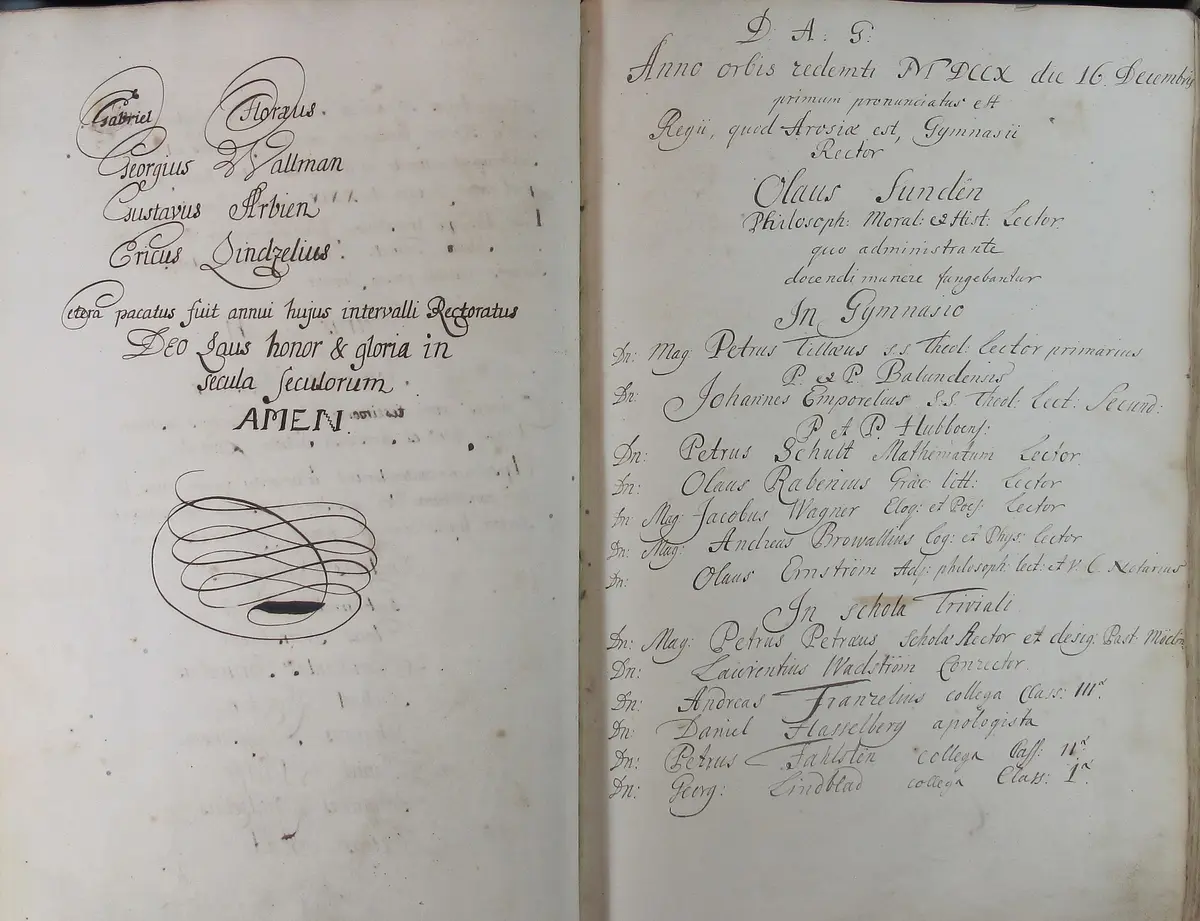 Gabriel Floræus.
Georgius Wallman
Gustavus Arbien
Ericus Lindzelius.
Cetera pacatus fuit annui hujus intervalli Rectoratus
DEO Laus honor & gloria in
secula seculorum
AMEN.
D. A. G:
Anno orbis redemti MDCCX die 16 Decembris
primum pronunciatus est
Regii, quod Arosiæ est, Gymnasii
Rector
Olaus Sundén
Philosoph: Moral: et Hist: Lector
quo administrante
docendi munere fungebantur
In Gymnasio
Dn: Mag: Petrus Tillæus s.s. Theol: Lector primarius
P. et P. Balundensis
Dn: Johannes Emporelius S.S. Theol: Lect: Secund:
P et P. Hubboens:
Dn: Petrus Schult Mathematum Lector
Dn: Olaus Rabenius Græc: litt: Lector
Dn: Mag: Jacobus Wagner Eloq: et Poës: Lector
Dn: Mag: Andreas Browallius Log: et Phys: Lector
Dn: Olaus Ernström Adj: philosoph: lect: et V. C. Notarius
In schola Triviali
Dn: Mag: Petrus Petræus scholæ Rector et desig: Past:
Dn: Laurentius Wadström Conrector.
Dn: Andreas Franzelius collega Class: III.æ
Dn: Daniel Hasselberg apologista
Dn: Petrus Fahlstén collega Class: II.æ
Dn: Georg: Lindblad collega Class: I.æ